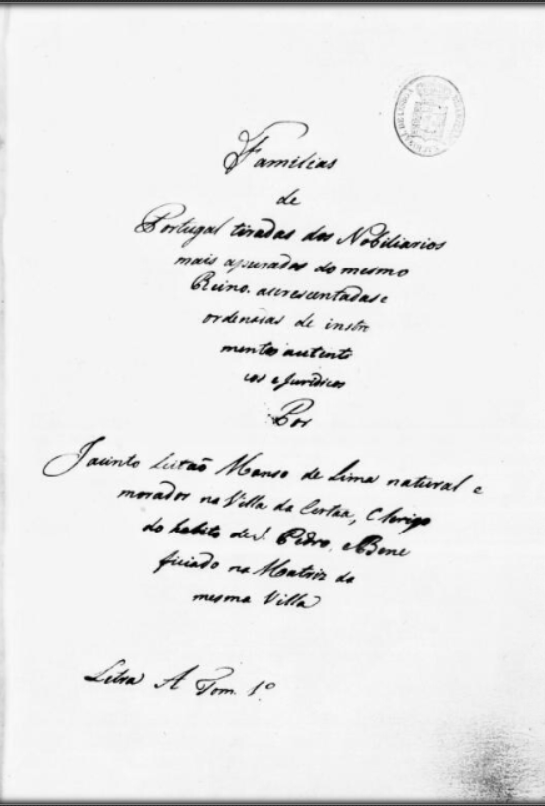 Familias
de
Portugal tiradas dos Nobiliarios
mais apurados do mesmo
Reino. acrescentadas e
ordenadas de instru
mentos autenti
cos e Juridicos
Por
Jacinto Leitão Manso de Lima natural e
morador na Villa da Certaa, Clerigo
do habito de S. Pedro, e Bene
ficiado na Matriz da
mesma Villa
Letra A Tom. 1º